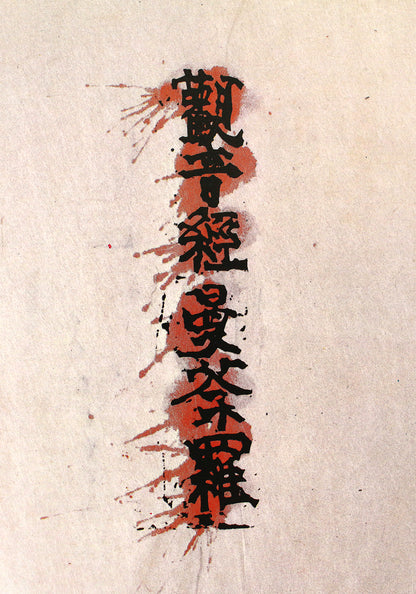 觀音經曼荼羅